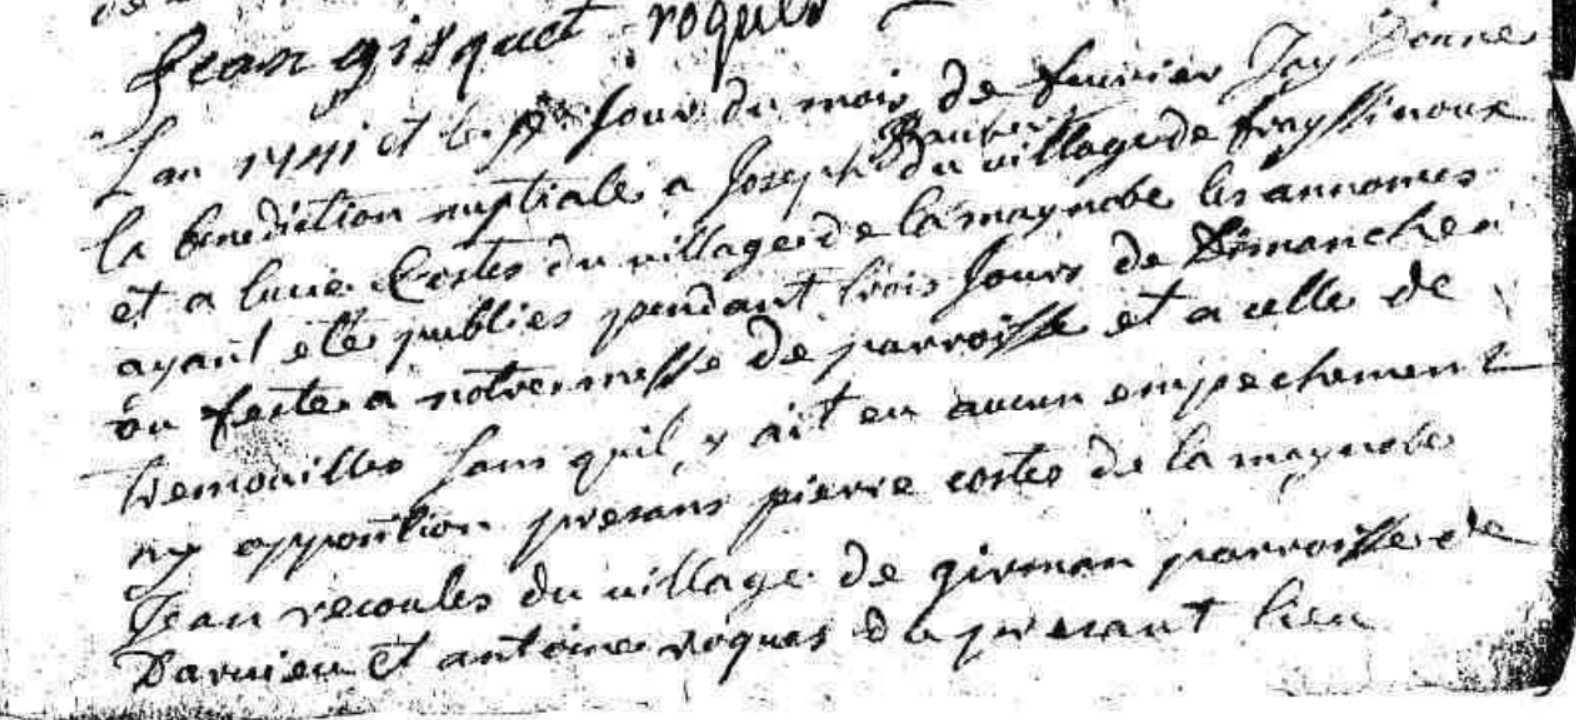 Jean gisquet roques
Lan 1741 et le jour du mois de feurier Jay Donné
la benediction nuptiale a Joseph Baubert du village de frayssinoux
et a lucie Costes du village de la maynobe les annonces
ayant eté publies pendant trois Jours de Dimanches
ou feste a notre messe de parroisse et a celle de
tremouilles sans quil y ait eu aucun empechement
ny oppontion presans pierre costes de la maynobe
Jean recoules du village de girman parroisse de
Darvieu et antoine roques du presant lieu